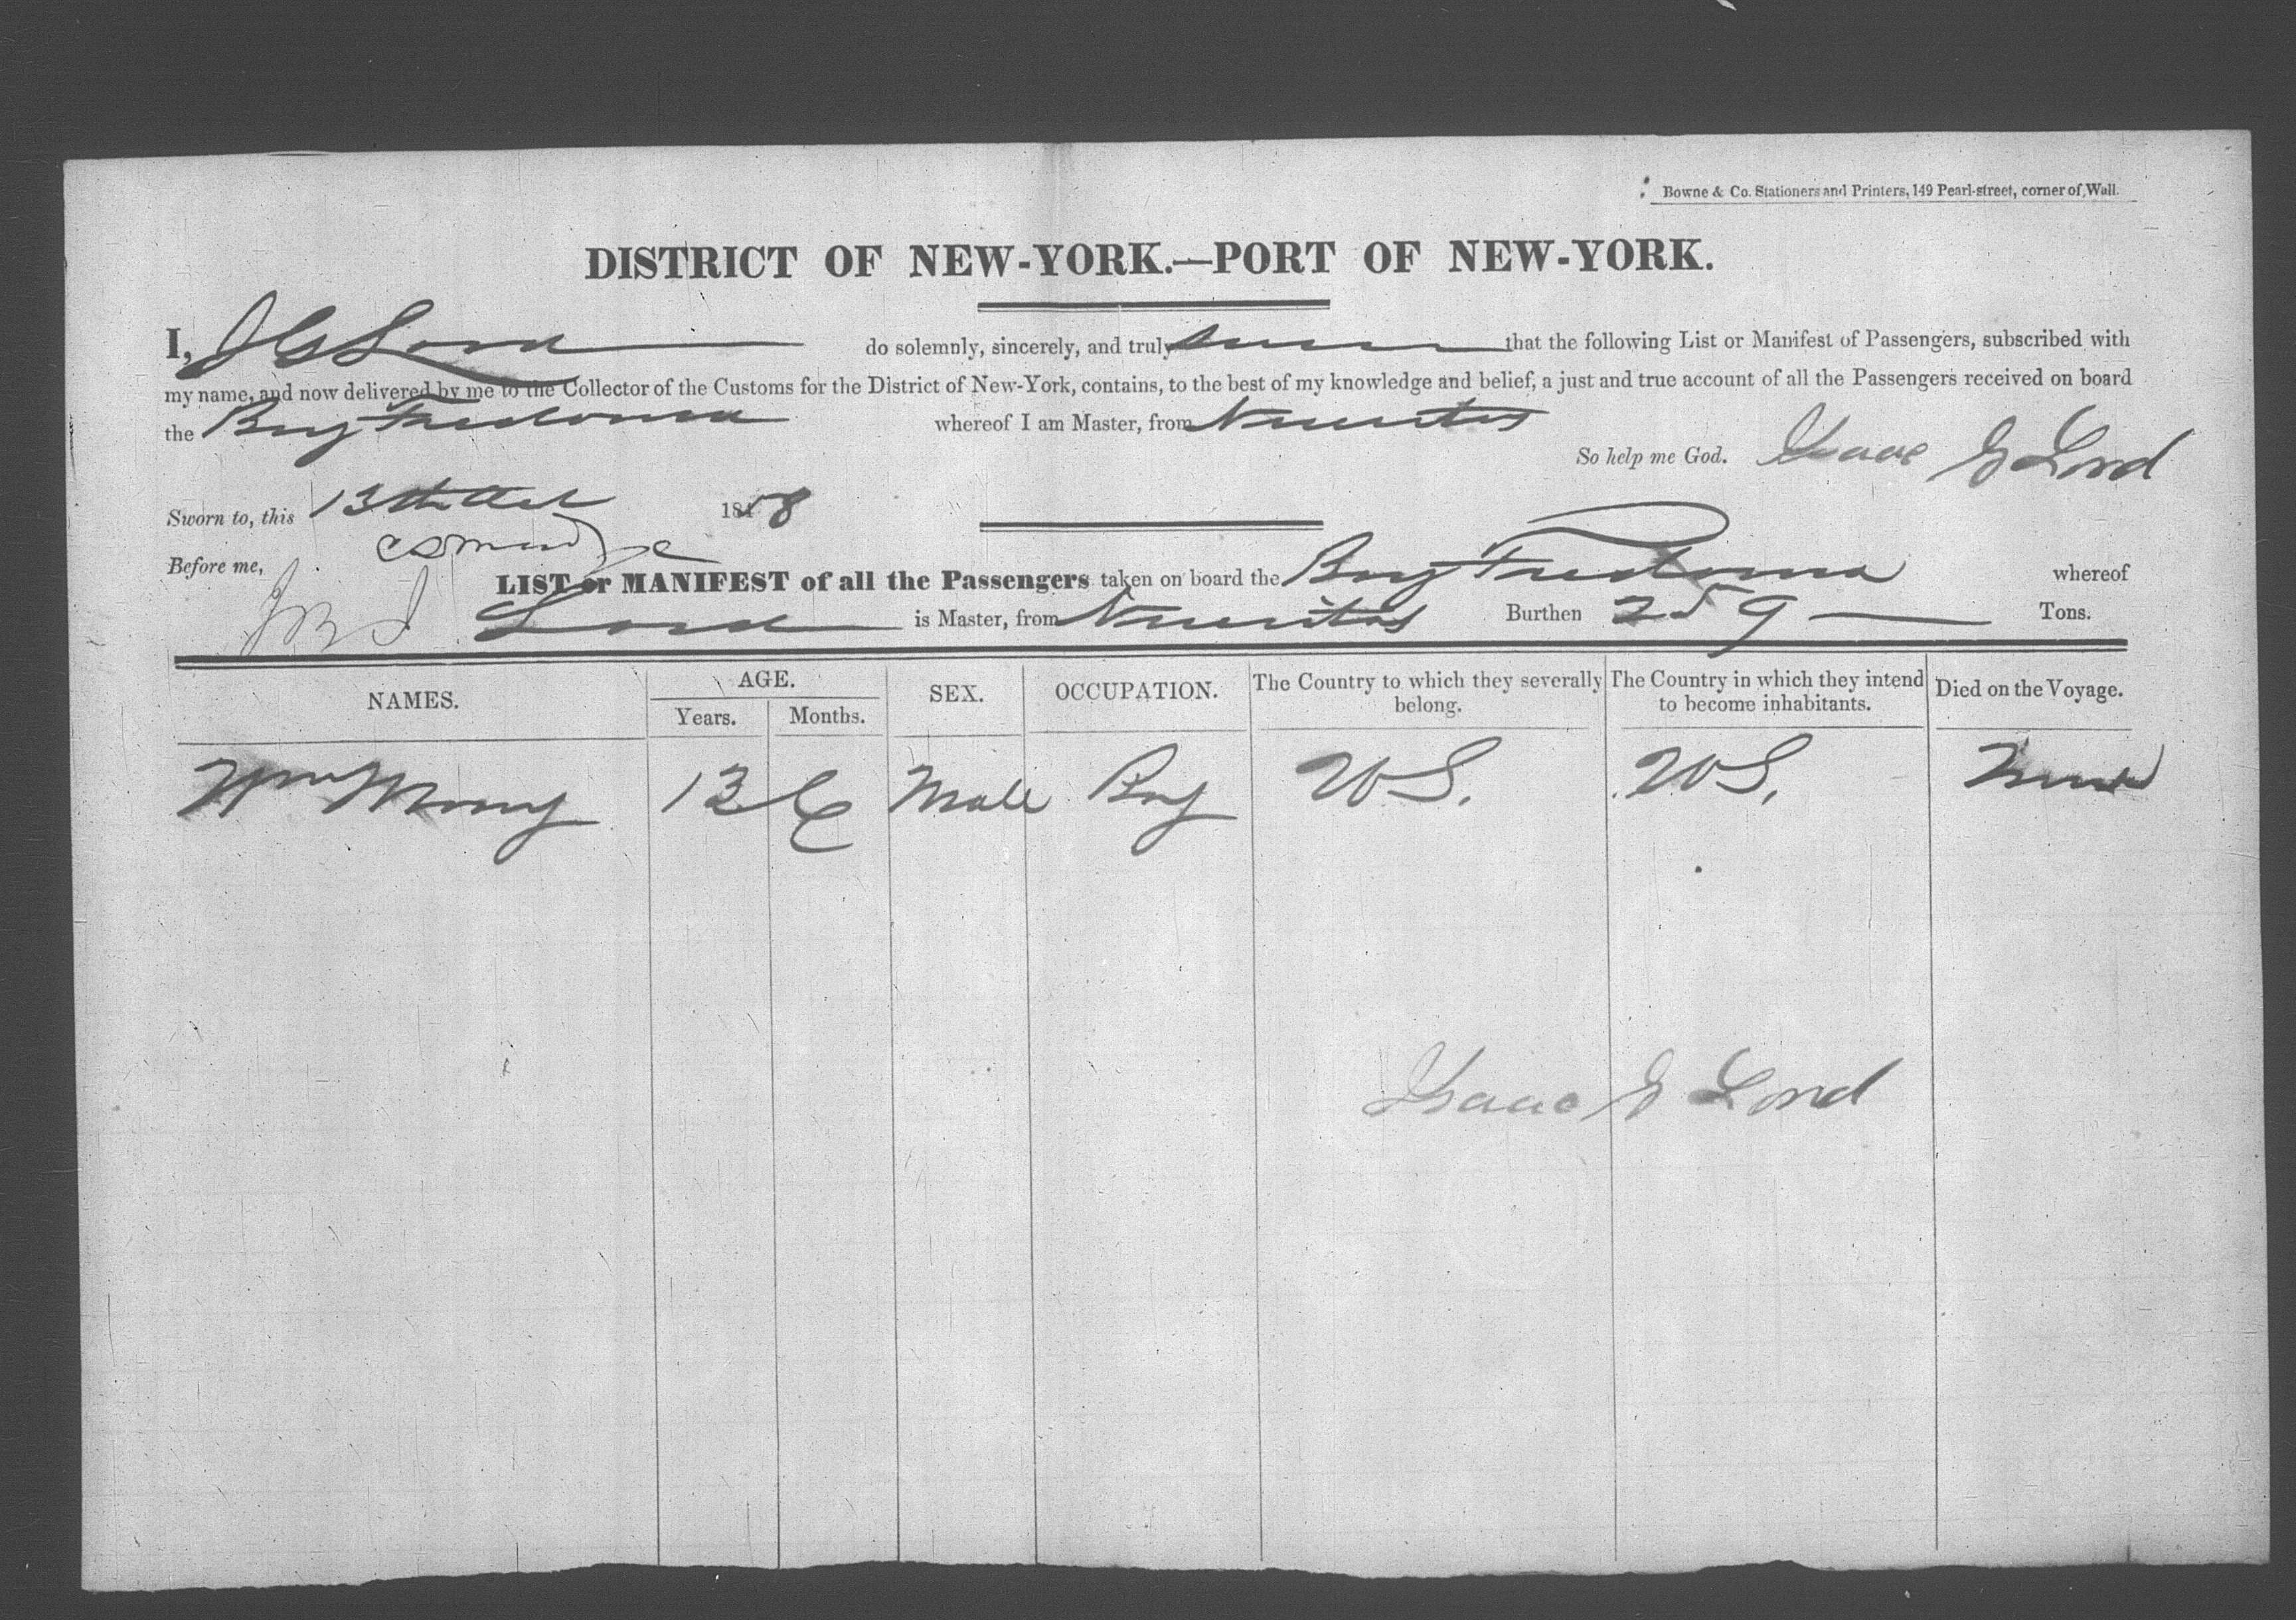 Bowne & Co. Stationers and Printers, 149 Pearl-street, corner of Wall.
DISTRICT OF NEW-YORK.—PORT OF NEW-YORK.
I, Lord do solemnly, sincerely, and truly swear that the following List or Manifest of Passengers, subscribed with
my name, and now delivered by me to the Collector of the Customs for the District of New-York, contains, to the best of my knowledge and belief, a just and true account of all the Passengers received on board
the Brig Fredonia whereof I am Master, from Nuevitas
So help me God. Isaac G Lord
Sworn to, this 13th 1858
Before me,
LIST or MANIFEST of all the Passengers taken on board the Brig Fredonia whereof
Lord is Master, from Nuevitas Burthen 259 Tons.
NAMES. AGE. SEX. OCCUPATION. The Country to which they severally belong. The Country in which they intend to become inhabitants. Died on the Voyage.
Years. Months.
Wm 13 6 Male Boy US. US. None
Isaac G Lord